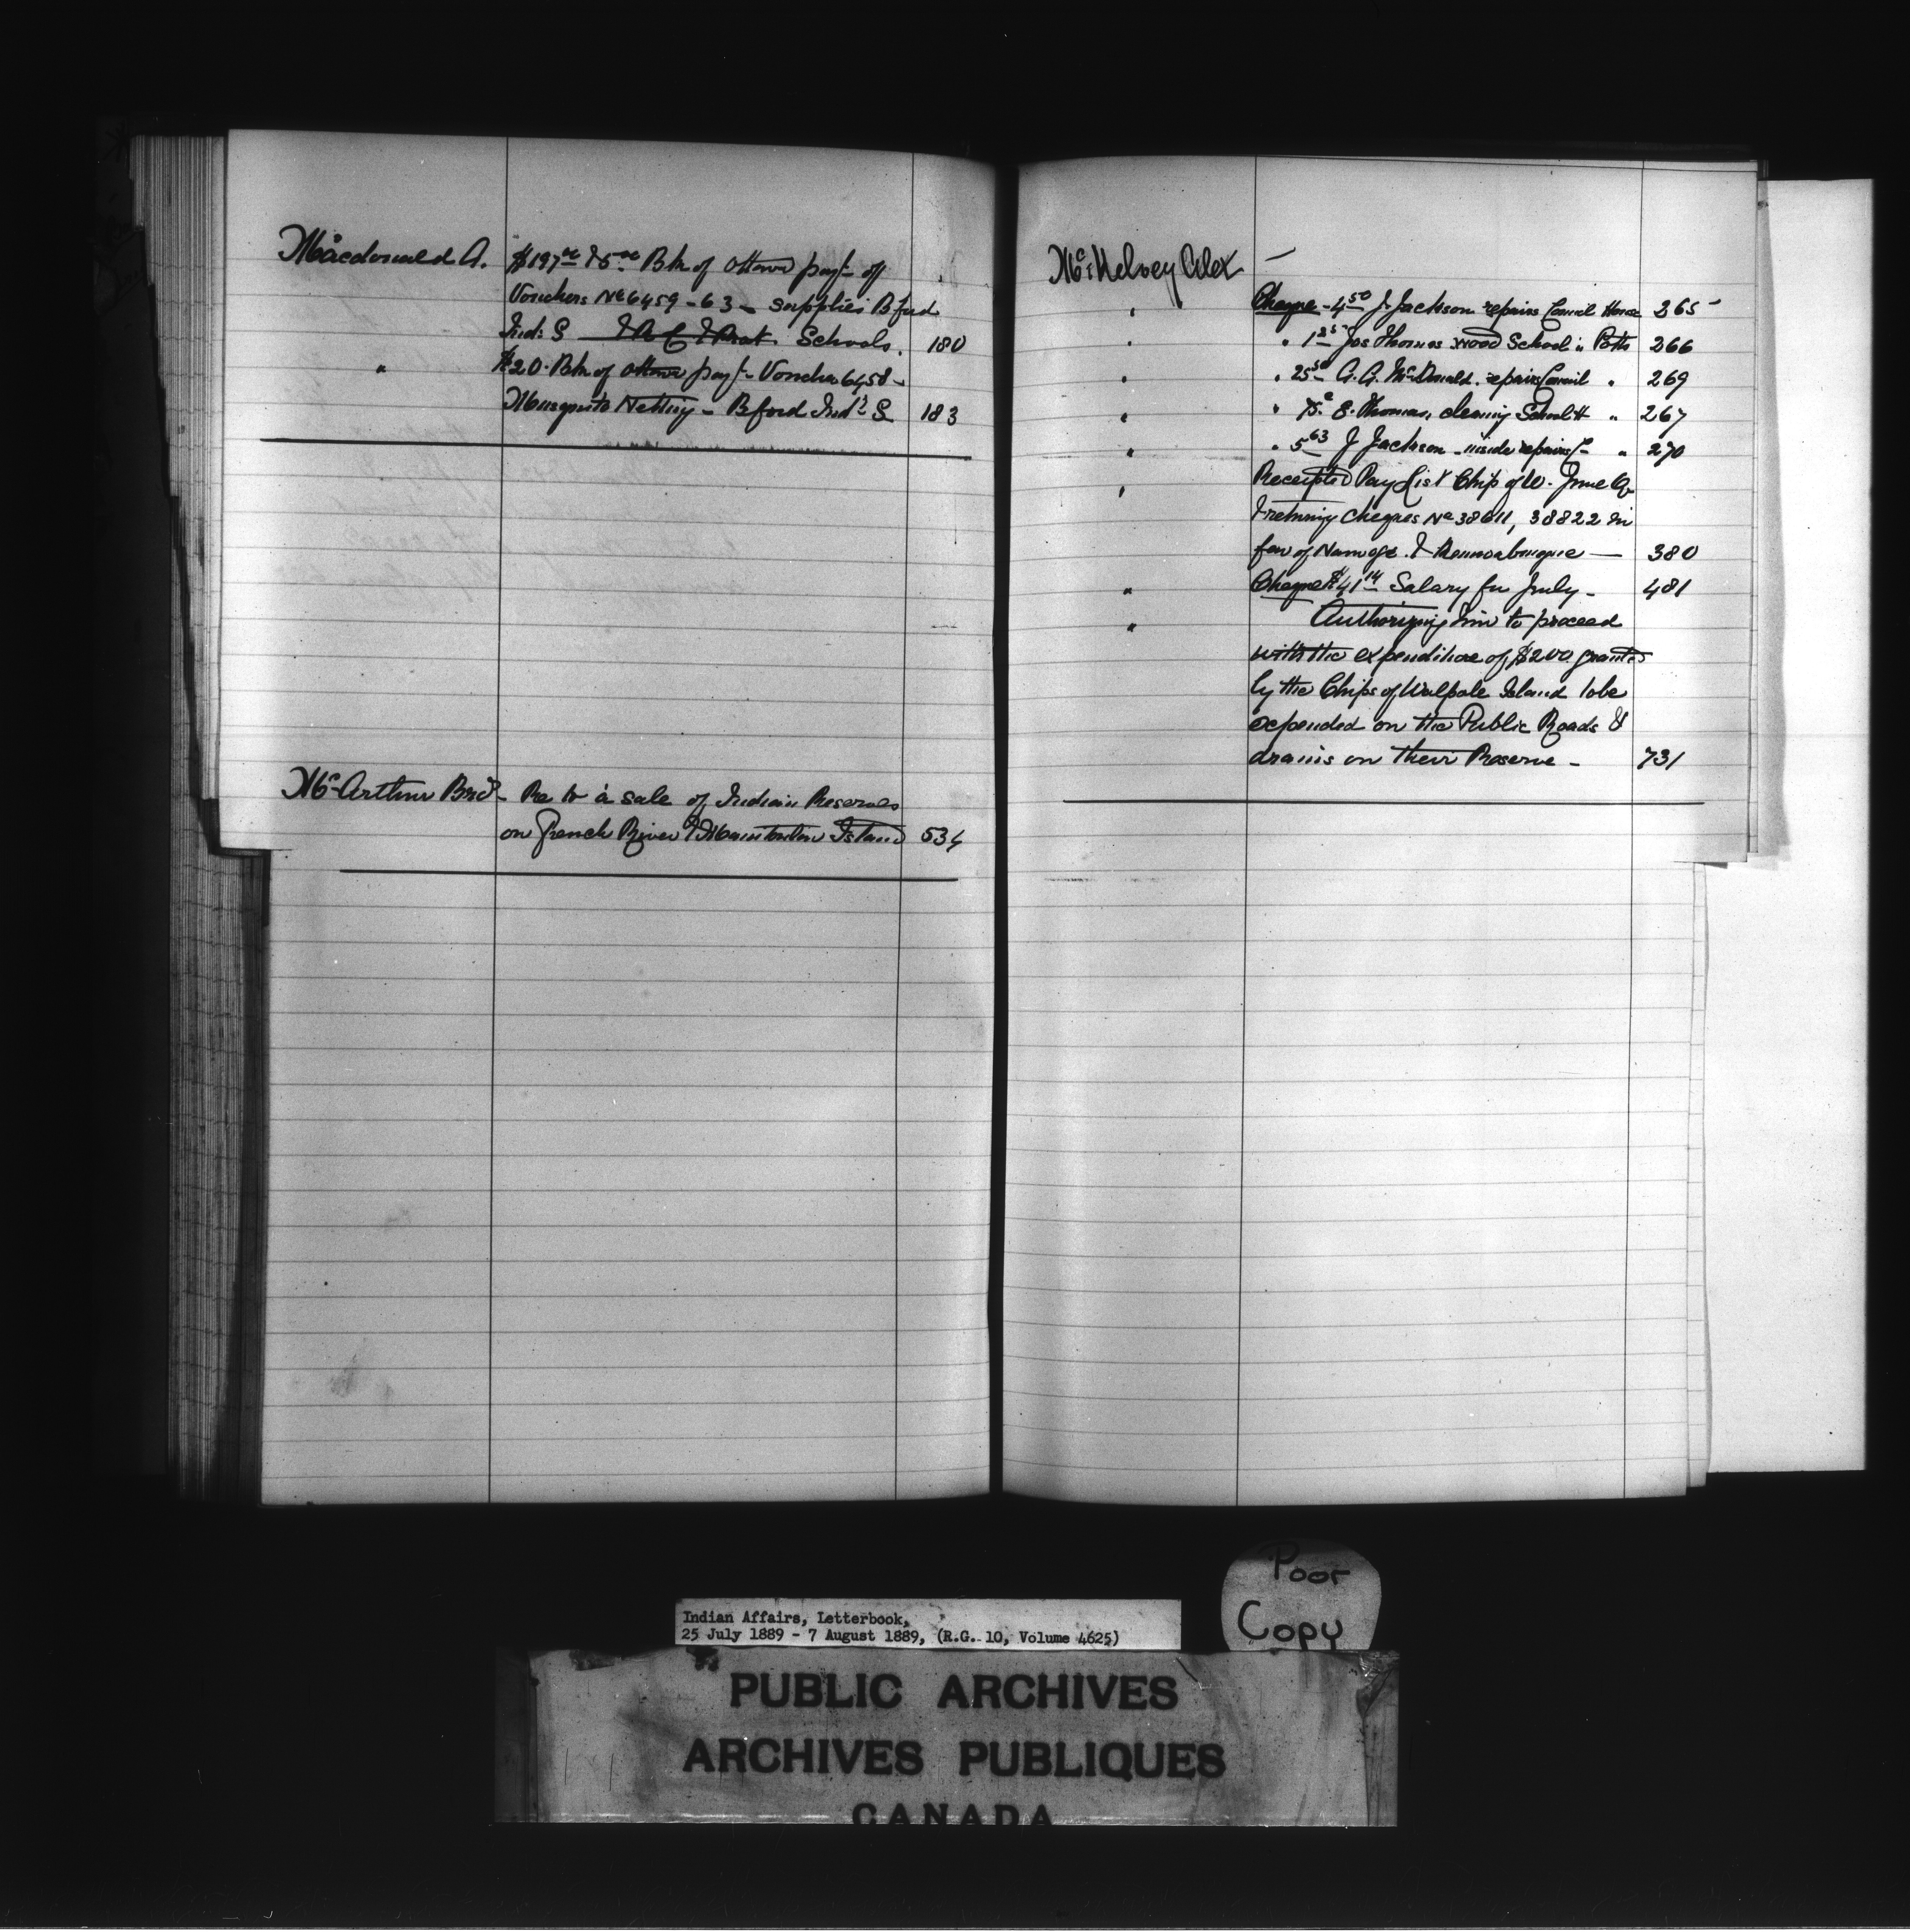 Macdonald A. $197 00 & 5 00 Bk of Ottawa payt of
Vouchers No 6459-63 - supplies B ford
Ind: S & R C & Prot. Schools. 180
" $20. Bk of Ottawa payt Voucher 6458 -
Mosquito Netting - B ford Indl S 183
McArthur Bros Re to a sale of Indian Reserves
on French River & Manitoulin Island 534
McKelvey Alex -
" Cheque - 4 50 J Jackson repairs Council House 265
" " 1 25 Jas Thomas wood School " 266
" " 25 50 A. A. McDonald. repairs Council " 269
" " 75c E. Thomas, cleaning School H " 267
" " 5 63 J Jackson - inside repairs " 270
" Receipted Pay List Chip of W. June Q
& returning cheques No 38611, 38822 in
fav of & 380
" Cheque $41 14 Salary for July - 481
" Authorizing him to proceed
with the expenditure of $200. granted
by the Chips of Walpole Island to be
expended on the Public Roads &
drains on their Reserve - 731
Poor
Copy
Indian Affairs, Letterbook,
25 July 1889 - 7 August 1889, (R.G. 10, Volume 4625)
PUBLIC ARCHIVES
ARCHIVES PUBLIQUES
CANADA